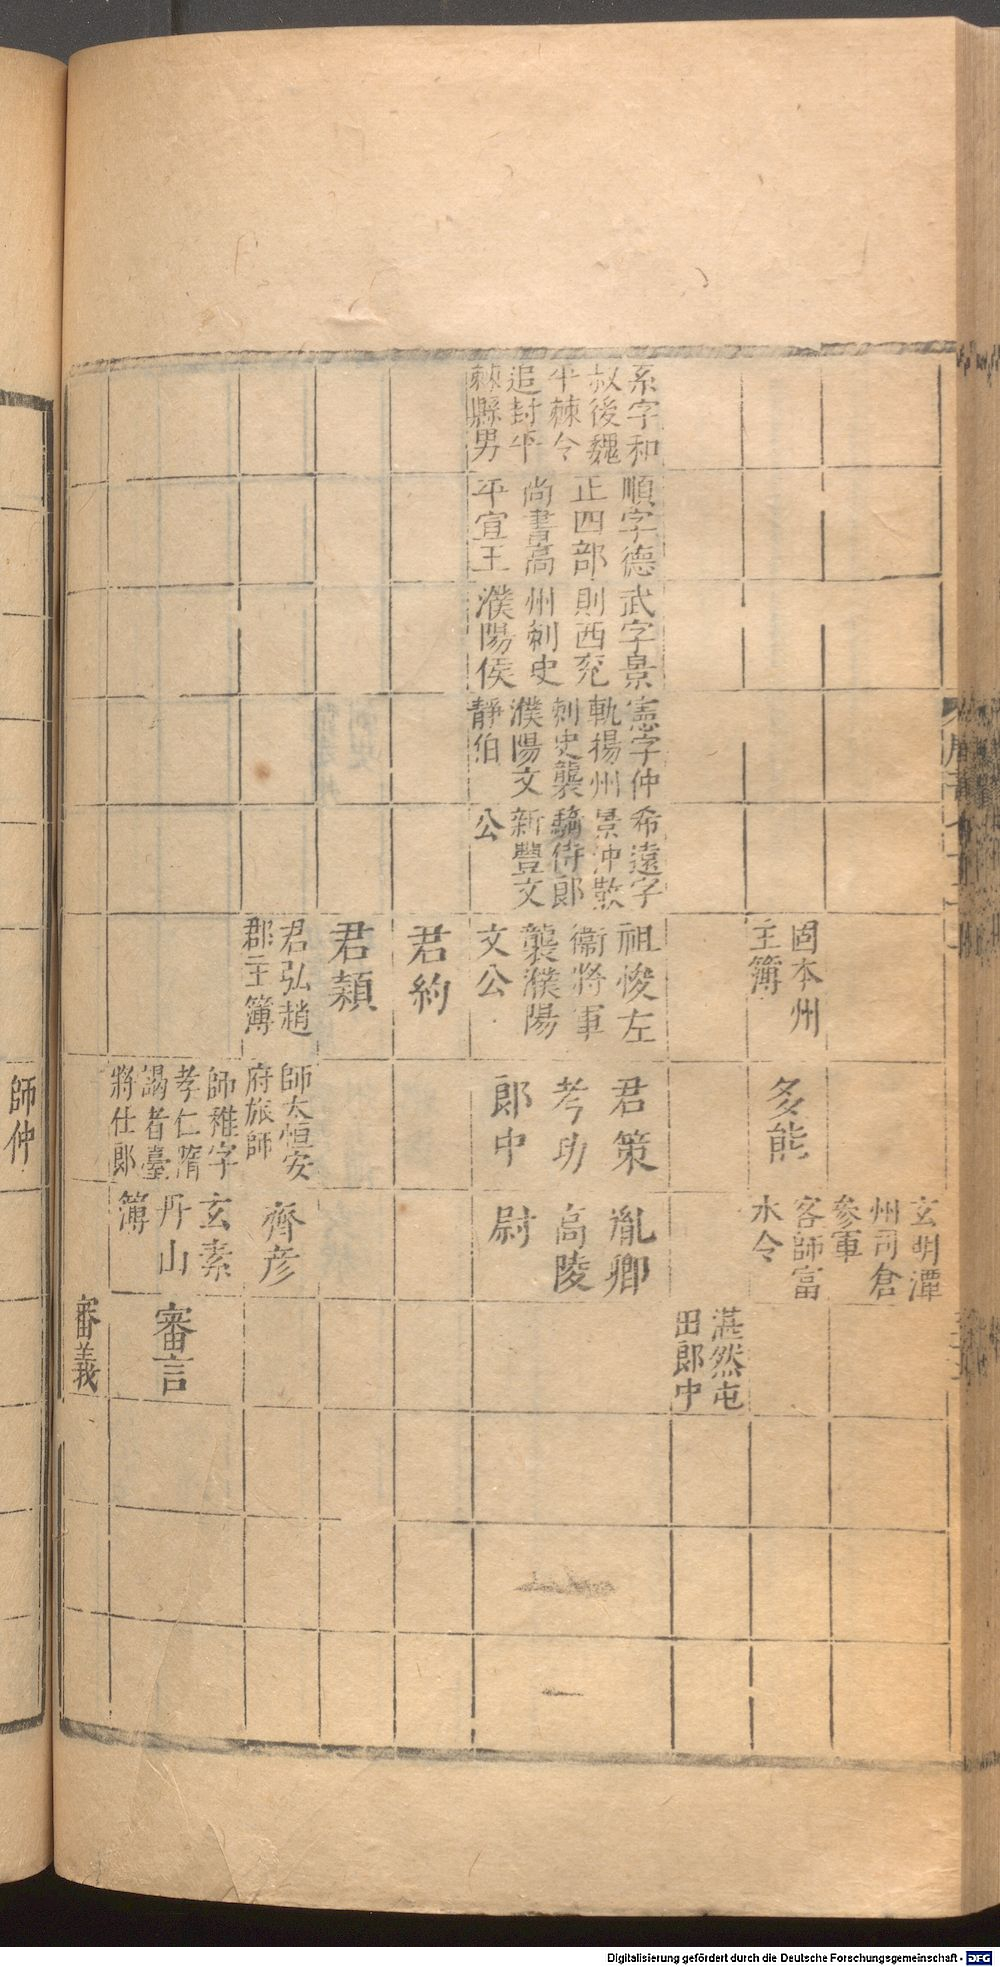 系字和
叔後魏
平棘令
追封平
棘縣男
順字德
正四部
尚書高
平宣王
武字景
則西兖
州刺史
濮陽侯
憲字仲
軌揚州
刺史襲
濮陽文
靜伯
希遠字
景沖散
騎侍郎
新豐文
公
固本州
主簿
祖悛左
衞將軍
襲濮陽
文公
君約
君頴
君弘趙
郡主簿
多能
君策
考功
郎中
師太恒安
府旅師
師稚字
孝仁隋
謁者臺
將仕郎
玄明潭
州司倉
參軍
客師富
水令
胤卿
高陵
尉
齊彦
玄素
丹山
簿
湛然屯
田郎中
審言
審義
師仲
Digitalisierung gefördert durch die Deutsche Forschungsgemeinschaft - DFG